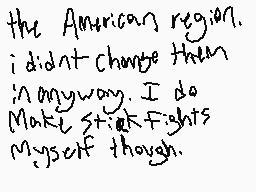 the American region.
i didnt change them
in anyway. I do
Make stick Fights
Myself though.